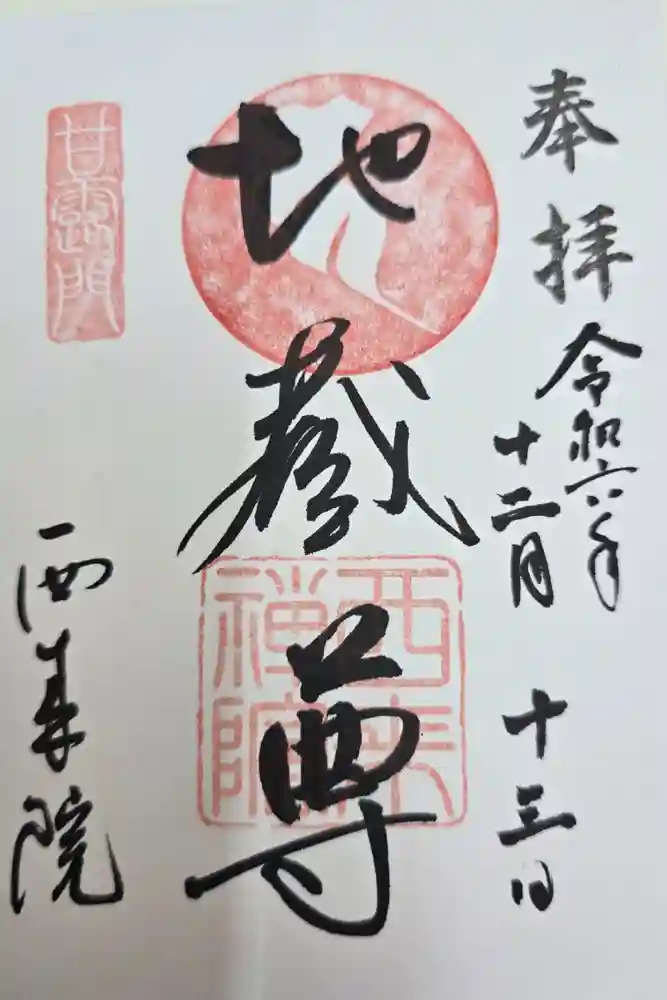 奉拝
令和六年
十二月
十三日
地蔵尊
西来禅院
甘露門
西来院